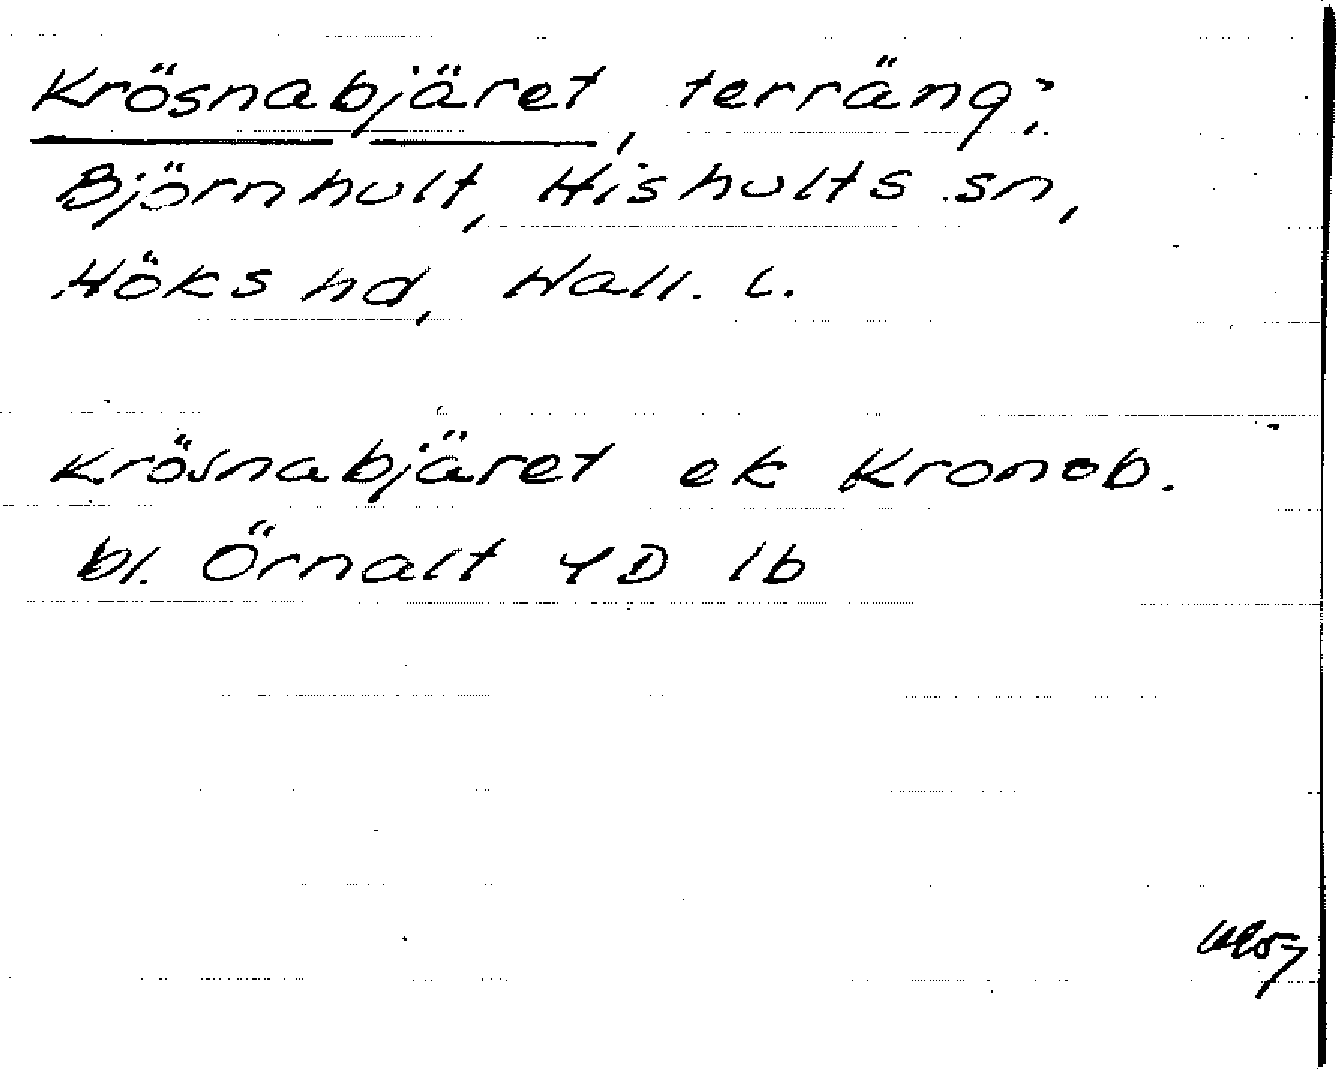 Krösnabjäret, terräng;
Björnhult, Hishults sn,
Höks hd, Hall. l.
Krösnabjäret ek Kronob.
bl. Örnalt 4D 1b